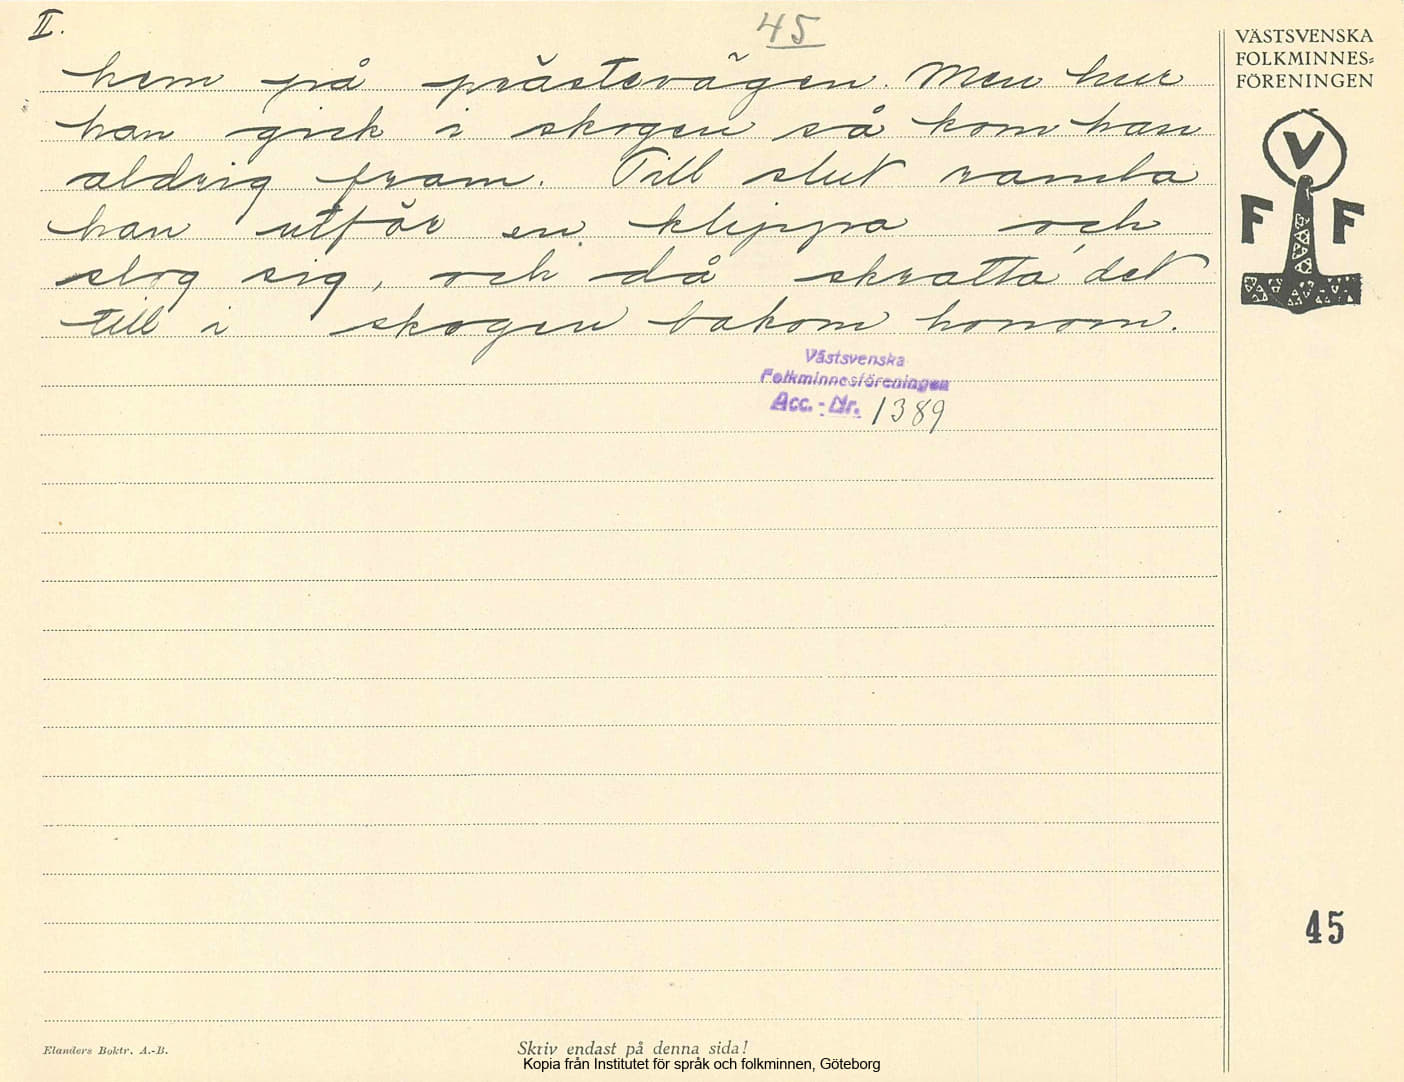 II.
45
hem på prästevägen. Men hur
han gick i skogen så kom han
aldrig fram. Till slut ramla
han utför en klippa och
slog sig, och då skratta' det
till i skogen bakom honom.
Västsvenska
Folkminnesföreningen
Acc. - Nr. 1389
VÄSTSVENSKA
FOLKMINNES=
FÖRENINGEN
V
F F
45
Elanders Boktr. A.-B.
Skriv endast på denna sida!
Kopia från Institutet för språk och folkminnen, Göteborg